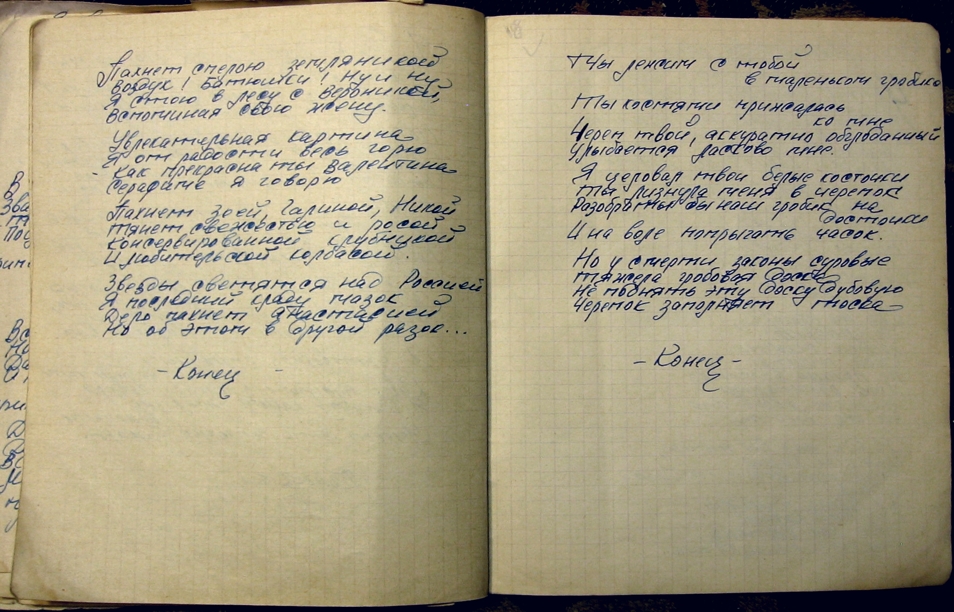 Пахнет спелою земляникой
Воздух! Батюшки! Ну и ну
Я стою в лесу с Вероникой,
Вспоминая свою жену.
Увлекательная картина
Я от радости весь горю
Как прекрасна ты Валентина
Серафиме я говорю
Пахнет Зоей, Галиной, Никой
Тянет свежестью и росой
Консервированной клубникой
И любительской колбасой.
Звезды светятся над Россией
Я последний кладу мазок
Дело пахнет Анастасией
Но об этом в другой разок...
- Конец -
Мы лежим с тобой
в маленьком гробике
Ты костями прижалась
ко мне
Череп твой, аккуратно обглоданный
Улыбается ласково мне.
Я целовал твои белые косточки
Ты лизнула меня в черепок
Разобрать бы наш гробик на
досточки
И на воле попрыгать часок.
Но у смерти законы суровые
Тяжела гробовая доска
Не поднять эту доску дубовую
Черепок заполняет тоска
- Конец -
В
Зв
По